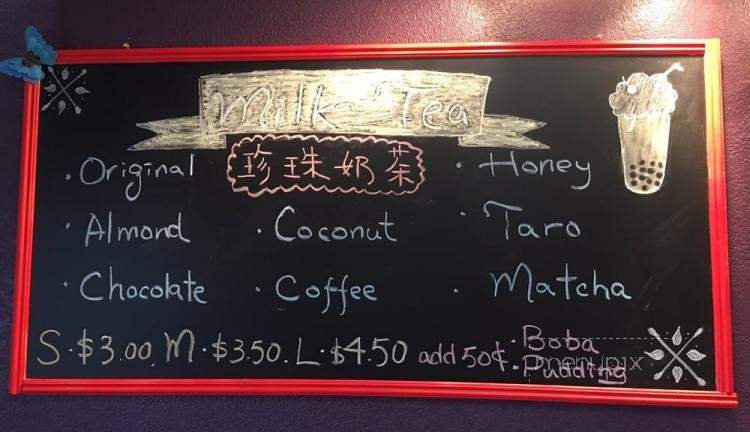 Milk Tea
珍珠奶茶
· Original · Honey
· Almond · Coconut · Taro
· Chocolate · Coffee · Matcha
S·$3.00, M·$3.50. L·$4.50 add 50¢ · Boba
· Pudding
menupix